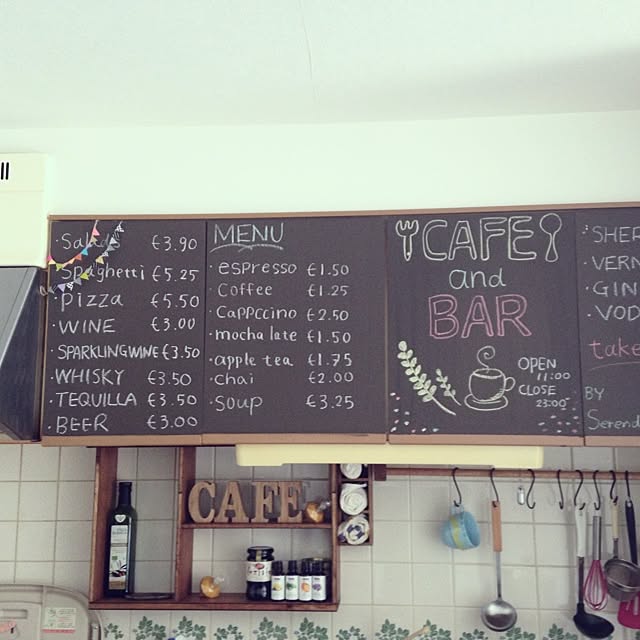 · Salad €3.90
· Spaghetti €5.25
· Pizza €5.50
· WINE €3.00
· SPARKLING WINE €3.50
· WHISKY €3.50
· TEQUILLA €3.50
· BEER €3.00
MENU
· espresso €1.50
· Coffee €1.25
· Cappccino €2.50
· mocha late €1.50
· apple tea €1.75
· chai €2.00
· soup €3.25
CAFE
and
BAR
OPEN
11:00
CLOSE
23:00
· SHER
· VERN
· GIN
· VOD
take
BY
Serend
CAFE